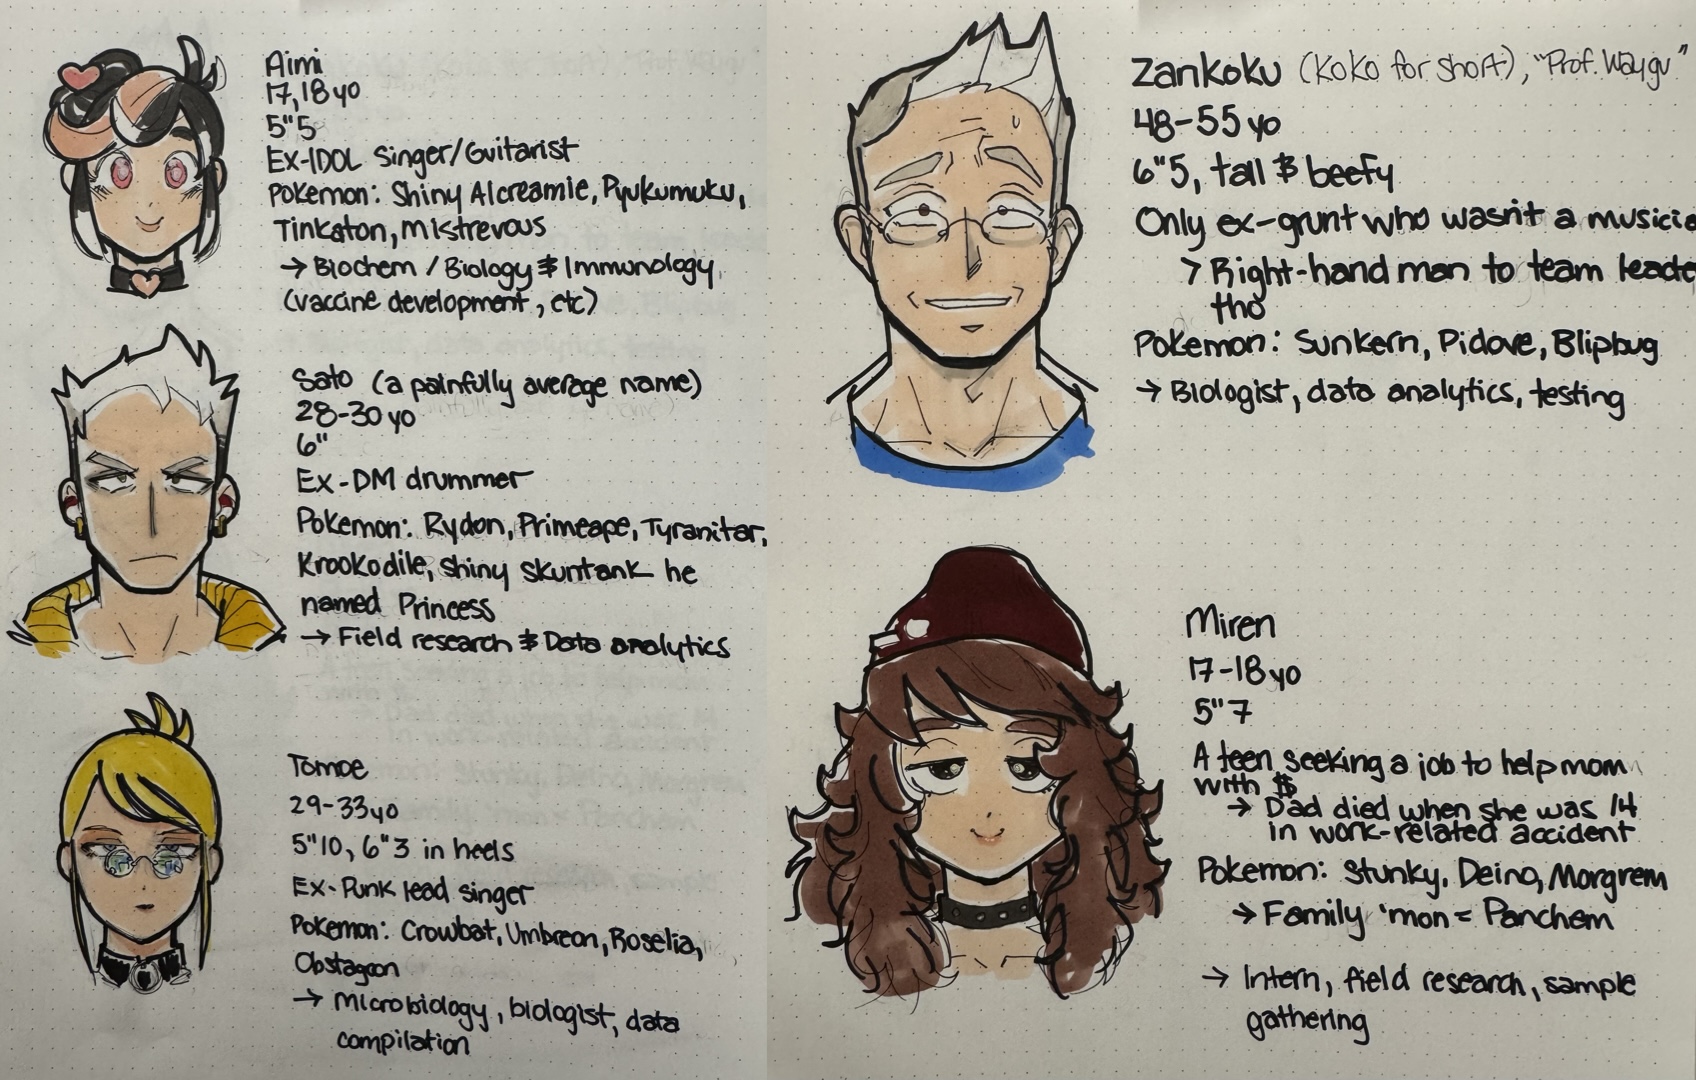 Aimi
17,18yo
5"5
Ex-IDOL Singer/Guitarist
Pokemon: Shiny Alcreamie, Pyukumuku,
Tinkaton, Mistrevous
→ Biochem / Biology & Immunology,
(vaccine development, etc)
Sato (a painfully average name)
28-30 yo
6"
Ex-DM drummer
Pokemon: Rydon, Primeape, Tyranitar,
Krookodile, Shiny Skuntank he
named Princess
→ Field research & Data analytics
Tomoe
29-33yo
5"10, 6"3 in heels
Ex-Punk lead singer
Pokemon: Crowbat, Umbreon, Roselia,
Obstagoon
→ Microbiology, biologist, data
compilation
Zankoku (Koko for short), "Prof. Waygu"
48-55 yo
6"5, tall & beefy
Only ex-grunt who wasn't a musicia
> Right-hand man to team leade
tho
Pokemon: Sunkern, Pidove, Blipbug
→ Biologist, data analytics, testing
Miren
17-18yo
5"7
A teen seeking a job to help mom
with $
→ Dad died when she was 14
in work-related accident
Pokemon: Stunky, Deino, Morgrem
→ Family 'mon = Panchem
→ Intern, field research, sample
gathering